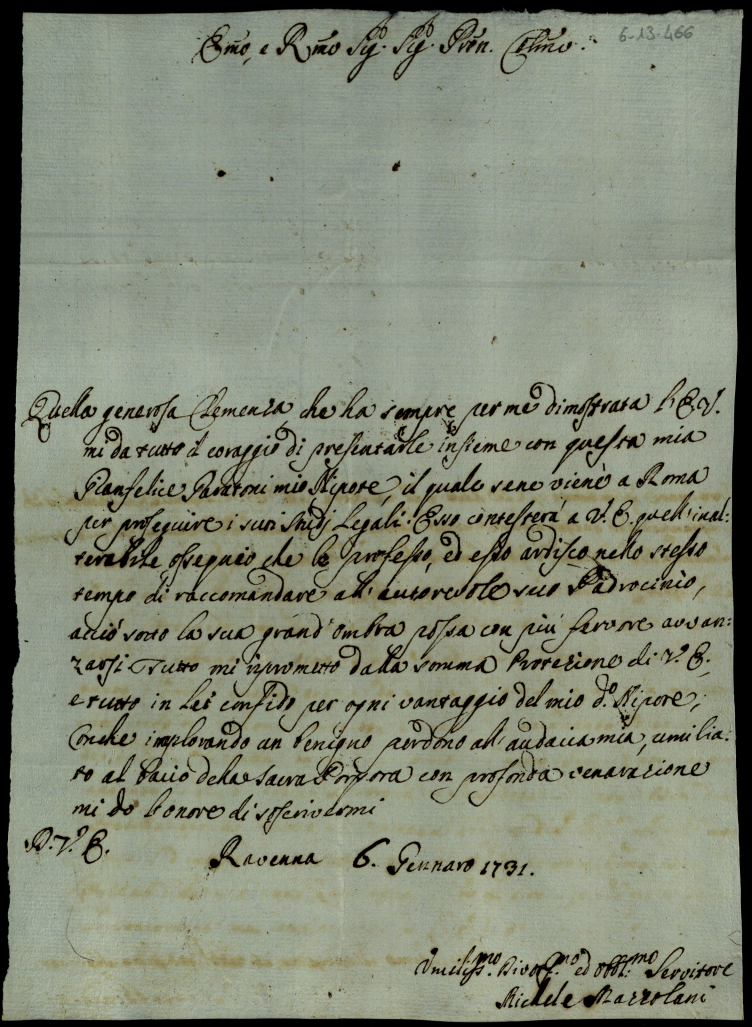 6-13-466
Emo, e Rmo Sig.r Sig.r Pron. Colmo.
Quella generosa Clemenza, che ha sempre per me dimostrata l'E.V.
mi da tutto il coraggio di presentarle insieme con questa mia
Gianfelice mio Nipote, il quale sene viene a Roma
per proseguire i suoi studj Legali. Esso contesterà a V.E. quell'inal:
terabile ossequio che le professo, ed esso ardisco nello stesso
tempo di raccomandare all'autorevole suo Padrocinio,
acciò sotto la sua grand'ombra possa con più fervore avvan:
zarsi. Tutto mi riprometto dalla somma Protezione di V.E.,
e tutto in Lei confido per ogni vantaggio del mio do. Nipote;
Onde implorando un benigno perdono all'audacia mia, umilia:
to al bacio della Sacra Porpora con profonda venerazione
mi do l'onore di soscrivermi
D. V. E.
Ravenna 6. Gennaro 1731.
Umiliss.mo Divot.mo ed Obbl.mo Servitore
Michele Mazzolani